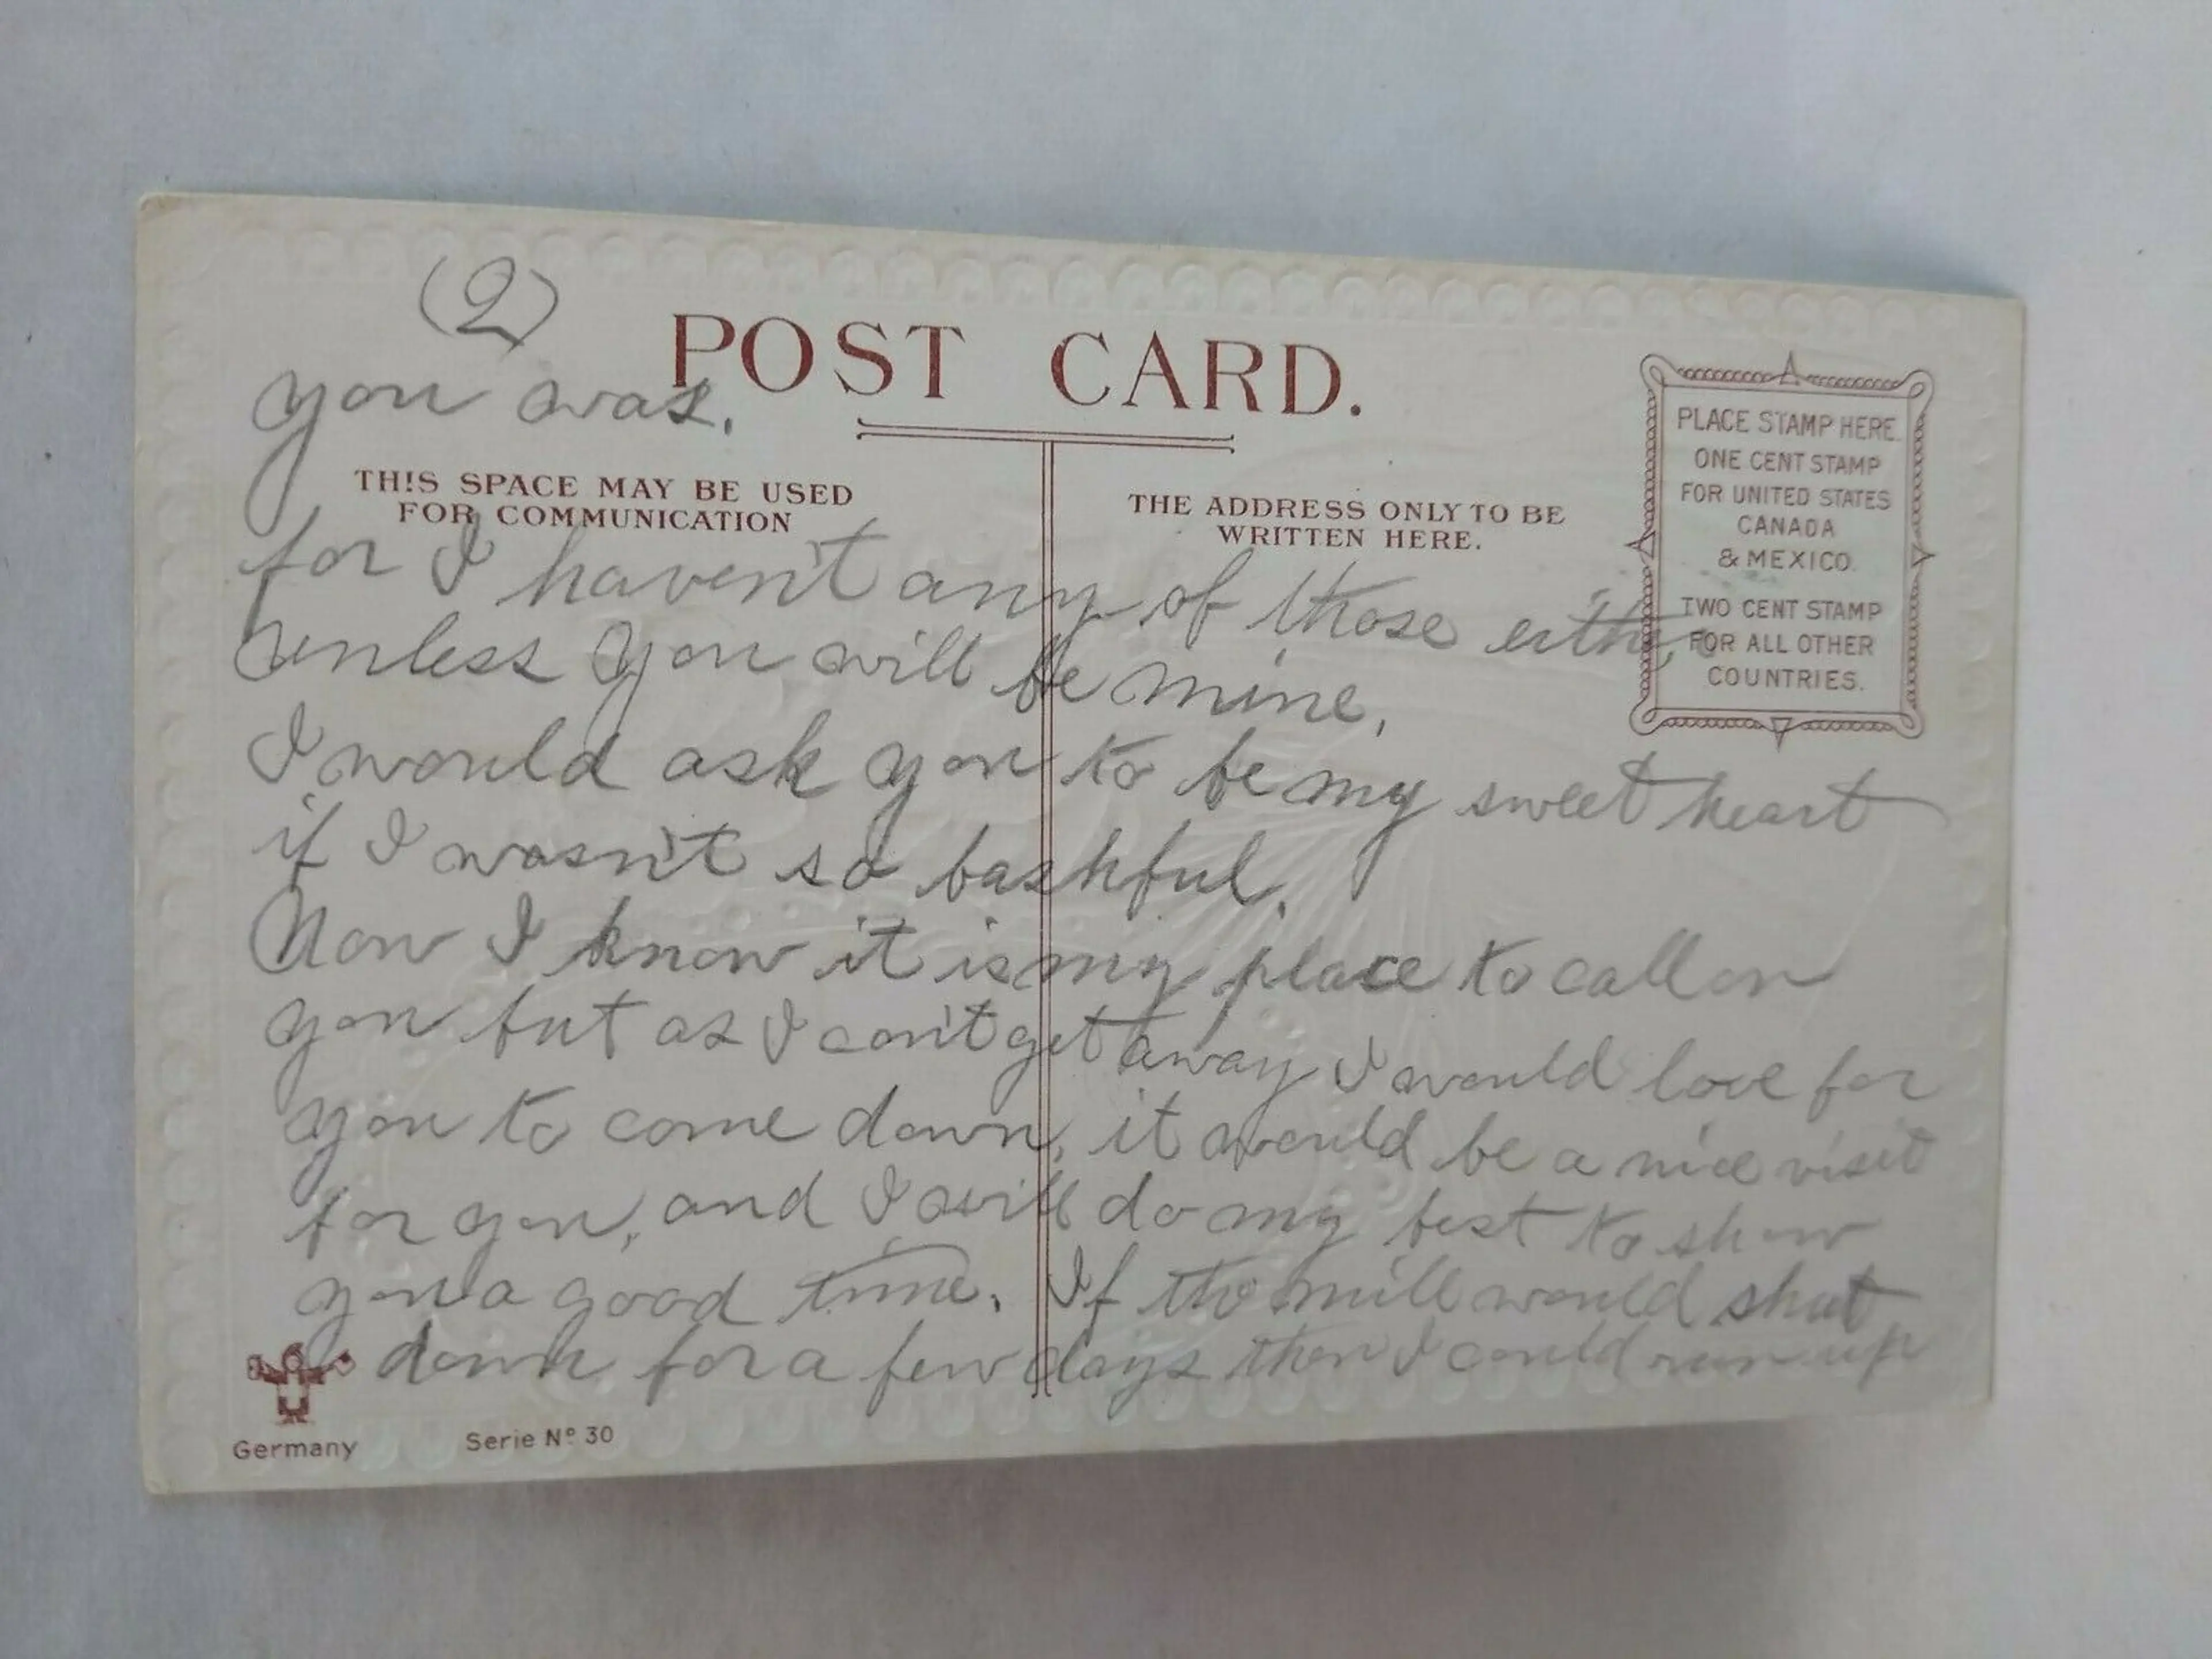 (2)
POST CARD.
you was.
THIS SPACE MAY BE USED
FOR COMMUNICATION
THE ADDRESS ONLY TO BE
WRITTEN HERE.
PLACE STAMP HERE.
ONE CENT STAMP
FOR UNITED STATES
CANADA
& MEXICO.
TWO CENT STAMP
FOR ALL OTHER
COUNTRIES.
for I haven't any of those either
unless you will be mine.
I would ask you to be my sweet heart
if I wasn't so bashful.
Now I know it is my place to call on
you but as I can't get away I would love for
you to come down, it would be a nice visit
for you, and I will do my best to show
you a good time. If the mill would shut
down for a few days then I could run up
Germany
Serie Nº 30